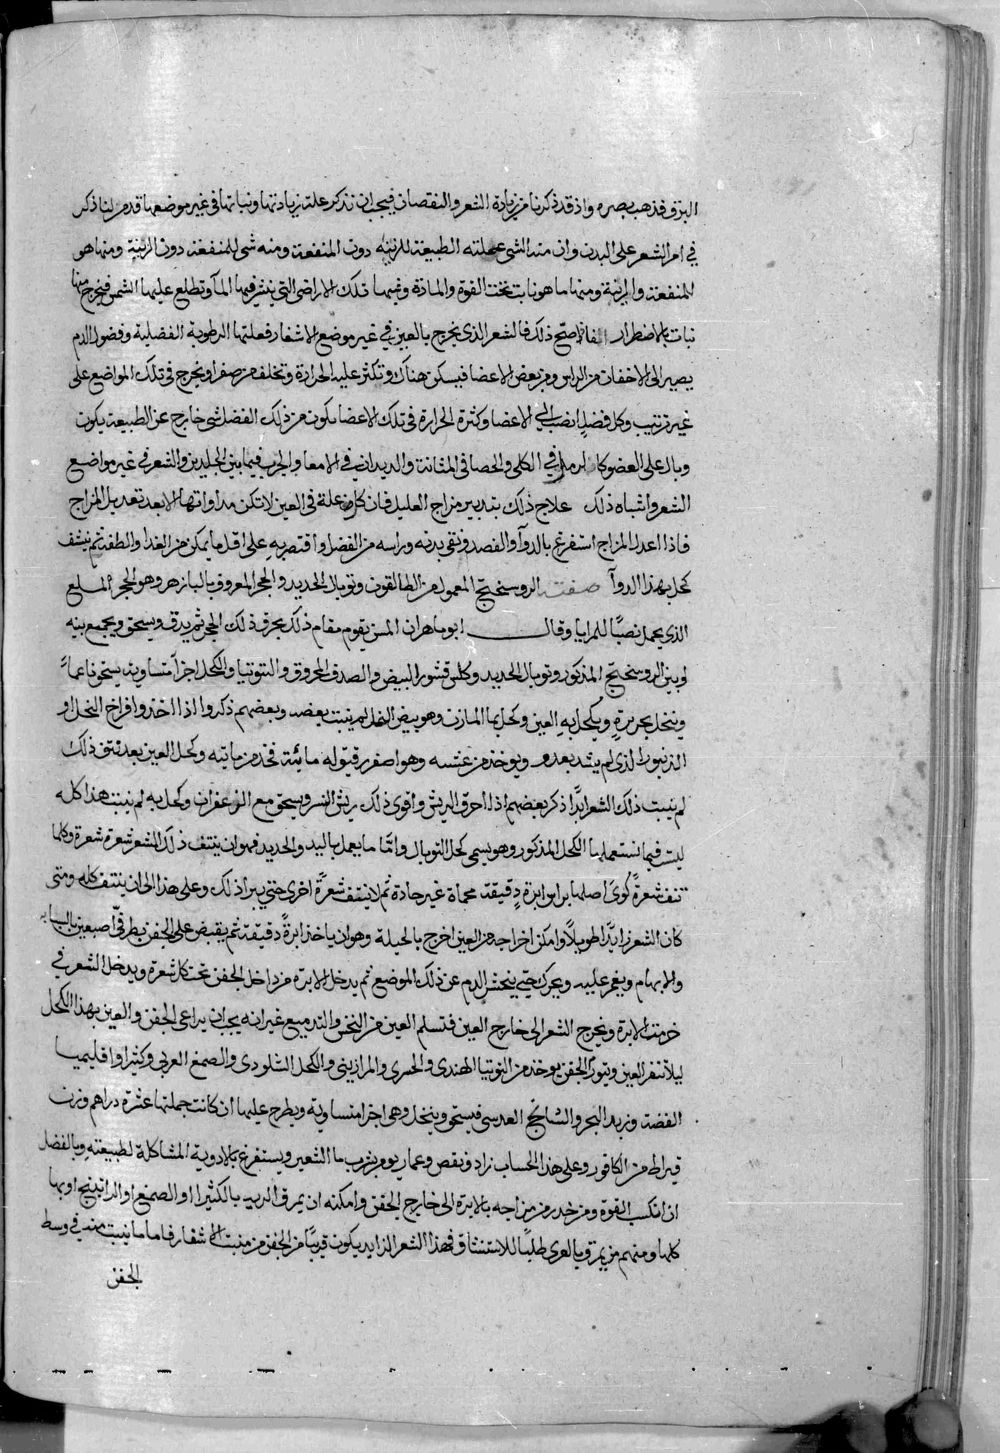 البزو فذهب بصره واذ قد ذكرنا من زيادة الشعر والنقصان فيجب ان نذكر علة زيادتها ونباتها في غير موضعها قد مر لنا ذكر
في امر الشعر على البدن وان منه الشي عملته الطبيعة للزينة دون المنفعة ومنه شي للمنفعة دون الزينة ومنها هو
للمنفعة والزينة ومنها ما هو نابت تحت القوة والمادة وفيها تلك الاراضي التي ينشر فيها المآ وتطلع عليها الشمس فيخرج منها
نبات بالاضطرار فاذا صح ذلك فالشعر الذي يخرج بالعين في غير موضع الاشفار فعلتها الرطوبة الفضلية وفضول الدم
يصير الى الاجفان من الراس ومن بعض الاعضا فيسكن هناك وتكثر عليه الحرارة وتخلف من صفرا ويخرج في تلك المواضع على
غير ترتيب وكل فضل انصب الى الاعضا وكثرة الحرارة في تلك الاعضا يكون من ذلك الفضل شي خارج عن الطبيعة يكون
وبال على العضو كالرمل في الكلى والحصا في المثانة والديدان في الامعا والجرب فيما بين الجلدين والشعر في غير مواضع
الشعر واشباه ذلك علاج ذلك بتدبير مزاج العليل فان كل علة في العين لا تكن مداواتها الا بعد تعديل المزاج
فاذا اعدل المزاج استفرغ بالدوآ والفصد ونقي بدنه وراسه من الفضل واقتصر به على اقل ما يمكن من الغذا والطفه ثم ينشف
كحل بهذا الدوآ صفته الروسختج المعمول من الطالقون وتوبال الحديد والحجر المعروف بالبازهر وهو الحجر الملمع
الذي يحمل نصبًا للمرايا وقال ابو ماهر ان المسن يقوم مقام ذلك يحرق ذلك الحجر ثم يدق ويسحق ويجمع بينه
وبين الروسختج المذكور وتوبال الحديد وكلس قشور البيض والصدف المحروق والتوتيا والكحل اجزآ متساوية يسحق ناعمًا
وينخل بحريرة ويكحل به العين وكحل بما المازن وهو بيض النمل لم ينبت بعضه وبعضهم ذكروا اذا اخذ افراخ النحل او
الزنبور الذي لم يشتد بعد ويوخذ من عشه وهو اصفر رقيق له مائية فخذ من مائيته وكحل العين بعد نتف ذلك
لم ينبت ذلك الشعر ابدًا ذكر بعضهم اذا احرق الريش واقوى ذلك ريش النسر ويسحق مع الزعفران وكحل به لم ينبت هذا كله
ليست فيما نستعملها الكحل المذكور وهو يسمى كحل التوبال وامّا ما يعمل باليد والحديد فهو ان ينتف ذلك الشعر شعرة شعرة وكلما
نتف شعرةً كوى اصلها براس ابرة دقيقة محماة غير حادة ثم لا ينتف شعرةً اخرى حتى يبرا ذلك وعلى هذا الى ان ينتف كله ومتى
كان الشعر زايدًا طويلًا وامكن اخراجه من العين اخرج بالحيلة وهو ان ياخذ ابرةً دقيقة ثم يقبض على الجفن بطرفي اصبعين بالسبابة
والابهام ويغمز عليه ويحرك حتى ينحش الدم عن ذلك الموضع ثم يدخل الابرة من داخل الجفن تحت كل شعرة ويدخل الشعر في
خرمة الابرة ويخرج الشعر الى خارج العين فتسلم العين من النخس والتدميع غير انه يجب ان يراعى الجفن والعين بهذا الكحل
ليلا تنفر العين ويتورّ الجفن يوخذ من التوتيا الهندي والحسري والمرازيني والكحل السلودي والصمغ العربي وكثيرا واقليميا
الفضة وزبد البحر والشانج العدسي فيسحق وينخل وهي اجزا متساوية ويطرح عليها ان كانت جملتها عشرة دراهم وزن
قيراط من الكافور وعلى هذا الحساب زاد ونقص وعمار يوم بشرب ما الشعير ويستفرغ بالادوية المشاكلة لطبيعته وبالفضل
ان انكسر القوة ومن خدر من مزاجه بالابرة الى خارج الجفن وامكنه ان يمرق اليه بالكثيرا او الصمغ او الراتينج او بها
كلها ومنهم من يمرق بالعرى طلبًا للاستنشاق فهذا الشعر الزايد يكون قريبًا من الجفن من منبت الاشفار فاما ما ينبت منه في وسط
الجفن